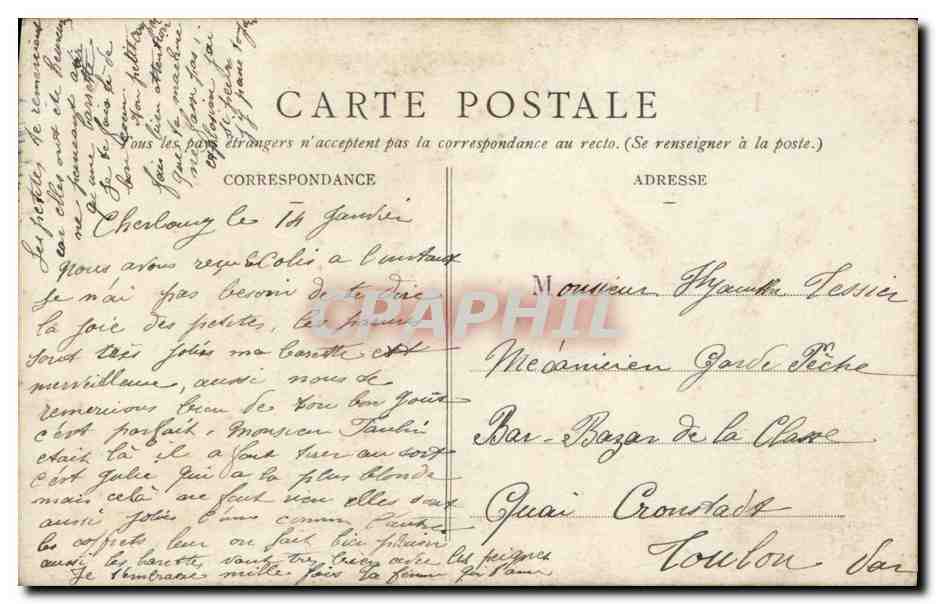 CARTE POSTALE
Tous les pays étrangers n'acceptent pas la correspondance au recto. (Se renseigner à la poste.)
CORRESPONDANCE
ADRESSE
Cherbourg le 14 Janvier
nous avons reçu le Colis a l'instant
Je n'ai pas besoin de te dire
la joie des petites, les
sont très jolies ma barette est
merveilleuse, aussi nous te
remercions bien de ton bon goût
c'est parfait, Monsieur
etait là il a fait tirer au sort
c'est Julie qui a la plus blonde
mais celà ne fait rien elles sont
aussi jolies l'une comme l'autre
les coffrets leur on fait bien plaisir
aussi, les barettes vont très bien avec les peignes
Je t'embrasse mille fois ta femme qui t'aime
Les petites te remercient
car elles ont été heureuses
ne pensant avoir
qu'une barette
Je te fais de
bon
ton petit
fais bien attention
que ta machine
ne fasse pas
explosion j'ai
si peur
Monsieur Hyacinthe Tessier
Mécanicien Garde Pêche
Bar-Bazar de la Classe
Quai Cronstadt
Toulon Var
CPAPHIL